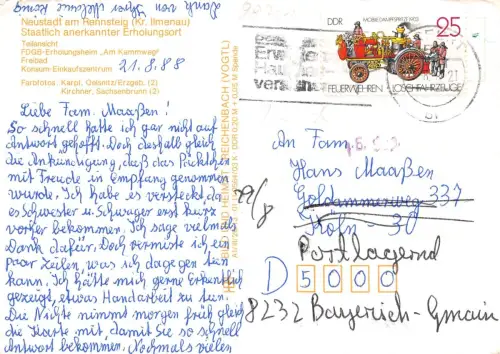 Neustadt am Rennsteig (Kr. Ilmenau)
Staatlich anerkannter Erholungsort
Teilansicht
FDGB-Erholungsheim „Am Kammweg“
Freibad
Konsum-Einkaufszentrum
21.8.88
Farbfotos Karpf, Oelsnitz/Erzgeb. (2)
Kirchner, Sachsenbrunn (2)
Liebe Fam. Maaßen!
So schnell hätte ich gar nicht auf
Antwort gehofft. Doch deshalb gleich
die Ankündigung, daß das Päckchen
mit Freude in Empfang genommen
wurde. Ich habe es versteckt, da
es Schwester u. Schwager erst kurz
vorher bekommen. Ich sage vielmals
Dank dafür. Doch vermisse ich ein
paar Zeilen, was ich dagegen tun
kann. Ich hätte mich gerne Erkenntlich
gezeigt, etwas Handarbeit zu tun.
Die Nichte nimmt morgen früh gleich
die Karte mit, damit Sie so schnell
Antwort bekommen. Nochmals vielen
Dank von
BILD UND HEIMAT REICHENBACH (VOGTL)
DDR
25
FEUERWEHREN - LÖSCHFAHRZEUGE
An Fam.
Hans Maaßen
Goldammerweg 337
Köln - 30
Postlagernd
D 5000
8232 Bayerisch-Gmain